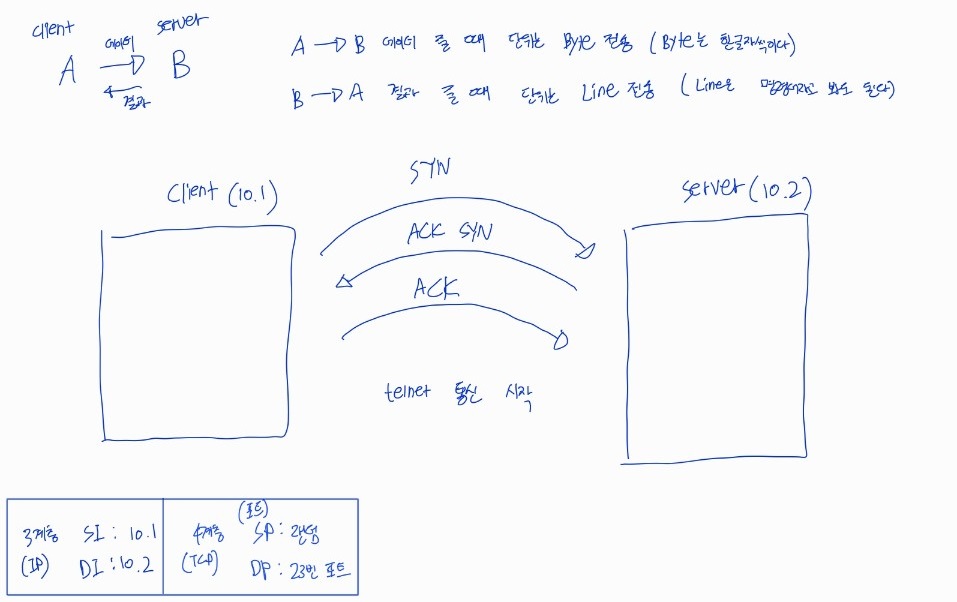 client server
데이터
A B
결과
A → B 데이터 줄 때 단위는 Byte 전송 (Byte는 한글자씩이다)
B → A 결과 줄 때 단위는 Line 전송 (Line은 명령어라고 봐도 된다)
SYN
Client (10.1)
server (10.2)
ACK SYN
ACK
telnet 통신 시작
3계층 SI : 10.1
(IP) DI : 10.2
(포트)
4계층 SP : 랜덤
(TCP) DP : 23번 포트